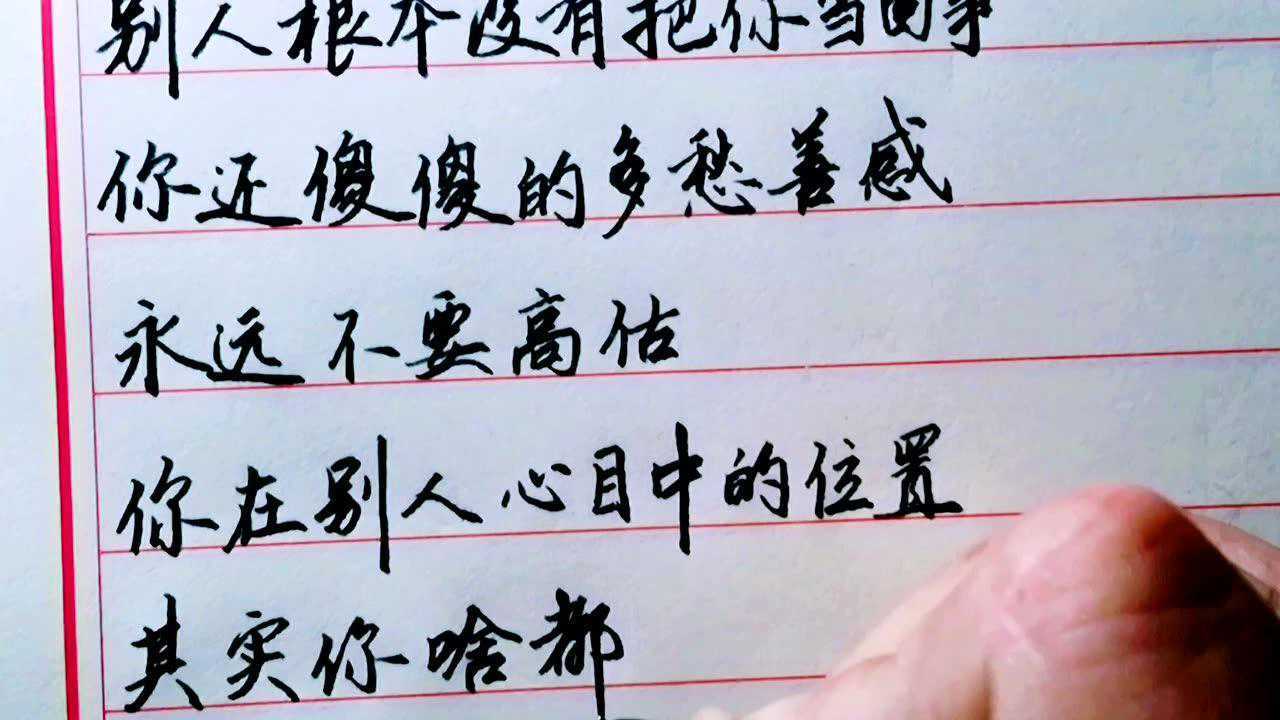 别人根本没有把你当回事
你还傻傻的多愁善感
永远不要高估
你在别人心目中的位置
其实你啥都